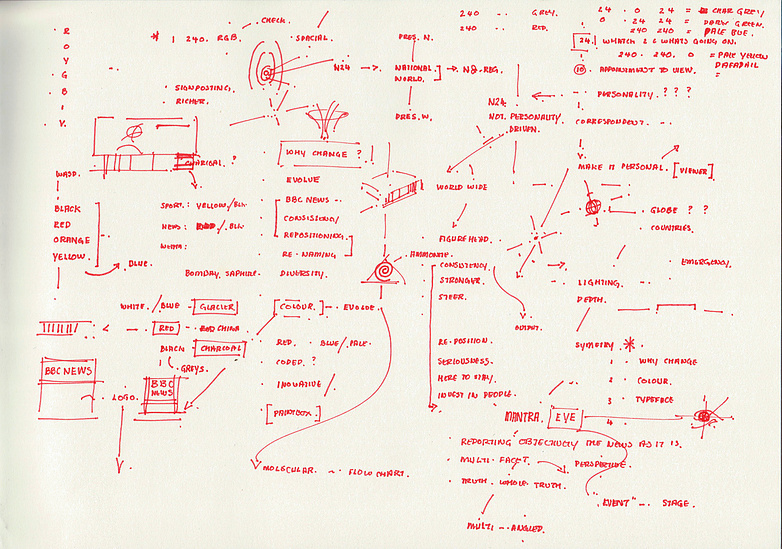 R
O
Y
G
B
I
V.
* 1 240. RGB.
CHECK.
SPECIAL.
SIGNPOSTING
RICHER.
N24
PRES. N.
NATIONAL
WORLD.
PRES. W.
240 .. GREY.
240 .. RED.
24 . 0 24 = CHAR GREY
0 . 24 24 = DARK GREEN.
240 240 = PALE BLUE.
24. WHATS GOING ON.
240. 240. 0 = PALE YELLOW
10 APPOINTMENT TO VIEW.
PERSONALITY. ? ? ?
N24
NOT. PERSONALITY
DRIVEN.
CORRESPONDENT.
MAKE IT PERSONAL. [VIEWER]
CHARCOAL ?
WHY CHANGE ?
EVOLVE
BBC NEWS
REPOSITIONING.
RE-NAMING
DIVERSITY.
BLACK
RED
ORANGE
YELLOW.
BLUE.
SPORT: YELLOW/BLK.
NEWS: RED/BLK.
BOMBAY. SAPHIRE.
WORLD WIDE
GLOBE ? ?
COUNTRIES.
FIGUREHEAD.
AMMONITE.
CONSISTENCY
STRONGER.
STEER.
EMERGENCY.
LIGHTING.
DEPTH.
WHITE. / BLUE - GLACIER
RED
BLACK - CHARCOAL
GREYS.
COLOUR. EVOLVE.
RED. BLUE / PALE.
CODED. ?
INOVATIVE /
[PAINTBOX.]
OUTPUT.
RE-POSITION.
SERIOUSNESS.
HERE TO STAY.
INVEST IN PEOPLE.
SYMETRY. *
1 WHY CHANGE
2 COLOUR.
3 TYPEFACE
4
BBC NEWS
LOGO.
BBC
NEWS
MANTRA. EYE
REPORTING OBJECTIVELY THE NEWS AS IT IS.
MULTI-FACET. PERSPECTIVE.
TRUTH. WHOLE TRUTH.
"EVENT" STAGE.
MULTI-ANGLED.
MOLECULAR. FLOW CHART.